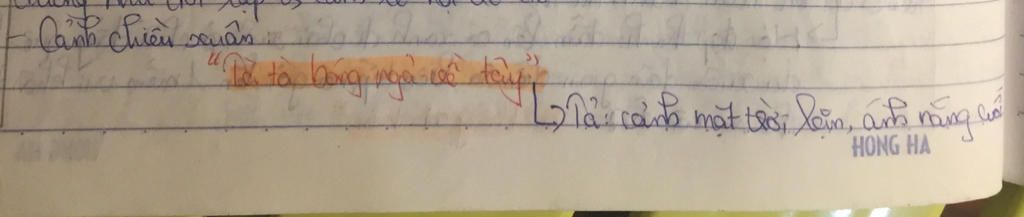 - Cảnh chiều xuân
"Tà tà bóng ngả về tây"
↳ Tả: cảnh mặt trời lặn, ánh nắng cuối
HONG HA